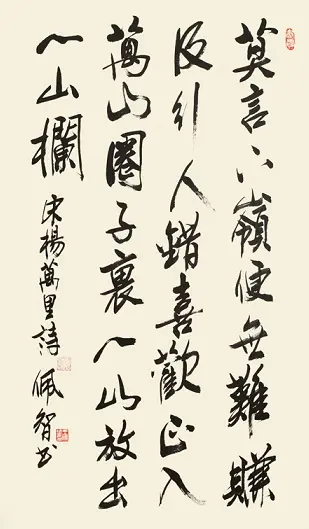 莫言下嶺便無難賺
得行人錯喜歡正入
萬山圈子裏一山放出
一山欄
宋楊萬里詩 佩智书